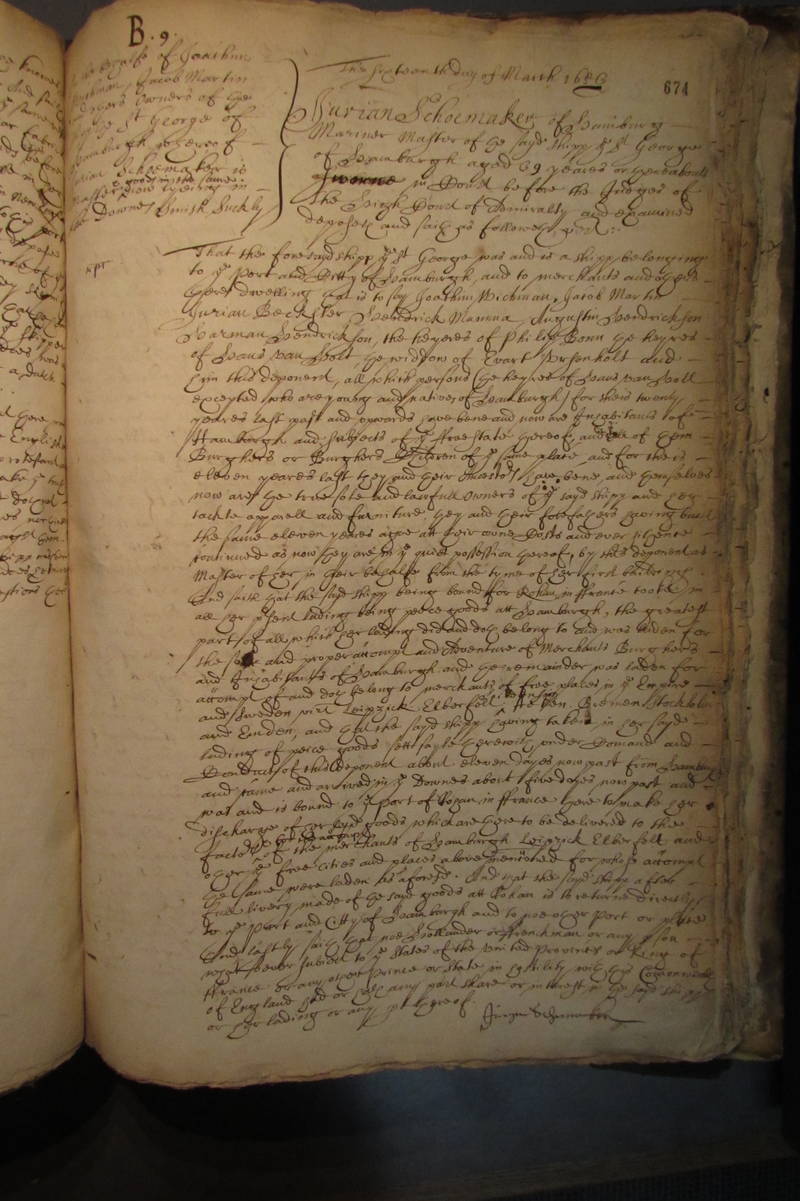 B. 9.
behalfe of Joachim
Wichman, Jacob Martin
owners of the
St George of
Hamburgh whereof
Jurian Schoemaker is
& goods in the same
Master now rydeing in
the Downes Smith Suckly
The sixteenth day of March 1652
674
Jurian Schoemaker of Hamburg
Mariner Master of the sayd shipp ye St George
of Hamburgh aged 39 yeares or thereabouts
sworne in Court before the Judges of
the high Court of Admiralty and examined
deposeth and saith as followeth, vizt.
That the foresayd shipp ye St George was and is a shipp belonging
to ye Port and Citty of Hamburgh, and to merchants and
there dwelling that is to say Joachim Wichman, Jacob Martin
Jurian Beckster Hendrick Mamma, Augustin Hendrickson
Harman Hendrickson, the heyeres of Philip Bonn the heyres
of Hans van Holt, the widdow of Evart and
him this deponent, all which persons (the heyres of Hans van Holt
excepted who are young and natives of Hamburgh) for theis twenty
yeares last past and upwards have bene and now are Inhabitants of
Hamburgh and subjects of ye ffree state thereof, and of them
Burghers or Burghers Children of ye same place, and for theis
eleven yeares last they and their Ancestors have bene, and themselves
now are the true sole and lawfull owners of ye sayd shipp and her
tackle apparell and furniture they and their forefathers having built
the same eleven yeares agoe att their owne Costs and ever since
continued as now they are in ye quiet possession thereof, by this deponent as
Master of her in their behalfe from the tyme of her first building.
And saith that the sayd shipp being bound for Rohan in ffrance tooke in
all her present lading being peece goods att Hamburgh, the greatest
part of all which her lading did and doth belong to and was laden for
the sole and proper accompt and adventure of Merchants Burghers
and Inhabitants of Hamburgh and the remainder was laden for
accompt of and doth belong to merchants of free places in ye Empire
and Sweden vizt Leipzick Elberfelt Bremen Stockholm
and Emden, and that the sayd shipp having taken in her sayd
lading of peice goods sett sayle therewith under Comand and
Conduct of this deponent about eleven dayes now past from Hamburgh
and came and arrived in ye Downes about five dayes now past and
was and is bound to ye port of Rohan in ffrance there to make her
discharge of her sayd goods which are there to be delivered to the
factors of the merchants of Hamburgh Leipzick Elberfelt and
other ye free cities and places above mencioned for whose accompt
the same were laden as aforesd. And that the sayd shipp after
delivery made of the sayd goods att Rohan is to returne directly
to ye Port and Citty of Hamburgh and to noe other Port or place
And lastly saith that noe Hollander or ffrenchman or any person
whatsoever subiect to ye States of the United Provinces or King of
ffrance or any other Prince or State in hostility with this Commonwealth
of England had or hath any part share or interest in the sayd shipp
or her lading or any pt thereof.